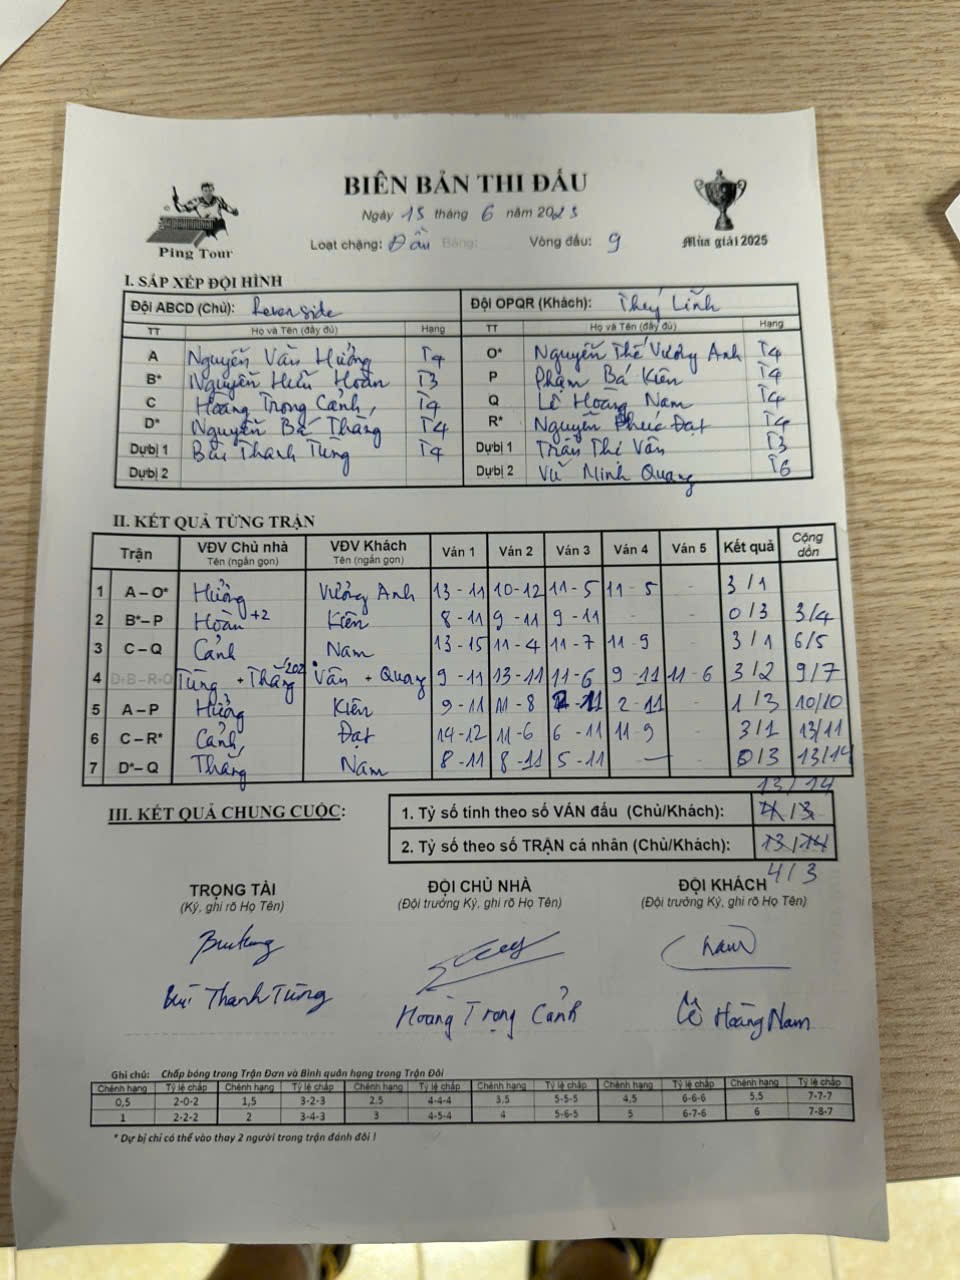 BIÊN BẢN THI ĐẤU
Ngày 15 tháng 6 năm 2025
Loạt chặng: Đầu Bảng: Vòng đấu: 9
Ping Tour
Mùa giải 2025
I. SẮP XẾP ĐỘI HÌNH
Đội ABCD (Chủ): Reverside Đội OPQR (Khách): Thúy Lĩnh
TT Họ và Tên (đầy đủ) Hạng TT Họ và Tên (đầy đủ) Hạng
A Nguyễn Văn Hưởng T4 O* Nguyễn Thế Vương Anh T4
B* Nguyễn Hữu Hoàn T3 P Phạm Bá Kiên T4
C Hoàng Trọng Cảnh T4 Q Lê Hoàng Nam T4
D* Nguyễn Bá Thắng T4 R* Nguyễn Phúc Đạt T4
Dựbị 1 Bùi Thanh Tùng T4 Dựbị 1 Trần Thị Vân T3
Dựbị 2 Dựbị 2 Vũ Minh Quang T6
II. KẾT QUẢ TỪNG TRẬN
Trận VĐV Chủ nhà VĐV Khách Ván 1 Ván 2 Ván 3 Ván 4 Ván 5 Kết quả Cộng dồn
Tên (ngắn gọn) Tên (ngắn gọn)
1 A – O* Hưởng Vương Anh 13 - 11 10 - 12 11 - 5 11 - 5 - 3 / 1
2 B*– P Hoàn +2 Kiên 8 - 11 9 - 11 9 - 11 - - 0 / 3 3/4
3 C – Q Cảnh Nam 13 - 15 11 - 4 11 - 7 11 - 9 - 3 / 1 6/5
4 D+B – R+O Tùng + Thắng 202 Vân + Quang 9 - 11 13 - 11 11 - 6 9 - 11 11 - 6 3 / 2 9/7
5 A – P Hưởng Kiên 9 - 11 11 - 8 - 11 2 - 11 - 1 / 3 10/10
6 C – R* Cảnh Đạt 14 - 12 11 - 6 6 - 11 11 - 9 - 3 / 1 13/11
7 D*– Q Thắng Nam 8 - 11 8 - 11 5 - 11 - - 0 / 3 13/14
III. KẾT QUẢ CHUNG CUỘC:
13 / 14
1. Tỷ số tính theo số VÁN đấu (Chủ/Khách): 4 / 3
2. Tỷ số theo số TRẬN cá nhân (Chủ/Khách): 13 / 14
4 / 3
TRỌNG TÀI ĐỘI CHỦ NHÀ ĐỘI KHÁCH
(Ký, ghi rõ Họ Tên) (Đội trưởng Ký, ghi rõ Họ Tên) (Đội trưởng Ký, ghi rõ Họ Tên)
Bùi Thanh Tùng Hoàng Trọng Cảnh Lê Hoàng Nam
Ghi chú: Chấp bóng trong Trận Đơn và Bình quân hạng trong Trận Đôi
Chênh hạng Tỷ lệ chấp Chênh hạng Tỷ lệ chấp Chênh hạng Tỷ lệ chấp Chênh hạng Tỷ lệ chấp Chênh hạng Tỷ lệ chấp Chênh hạng Tỷ lệ chấp
0,5 2-0-2 1,5 3-2-3 2,5 4-4-4 3,5 5-5-5 4,5 6-6-6 5,5 7-7-7
1 2-2-2 2 3-4-3 3 4-5-4 4 5-6-5 5 6-7-6 6 7-8-7
* Dự bị chỉ có thể vào thay 2 người trong trận đánh đôi !